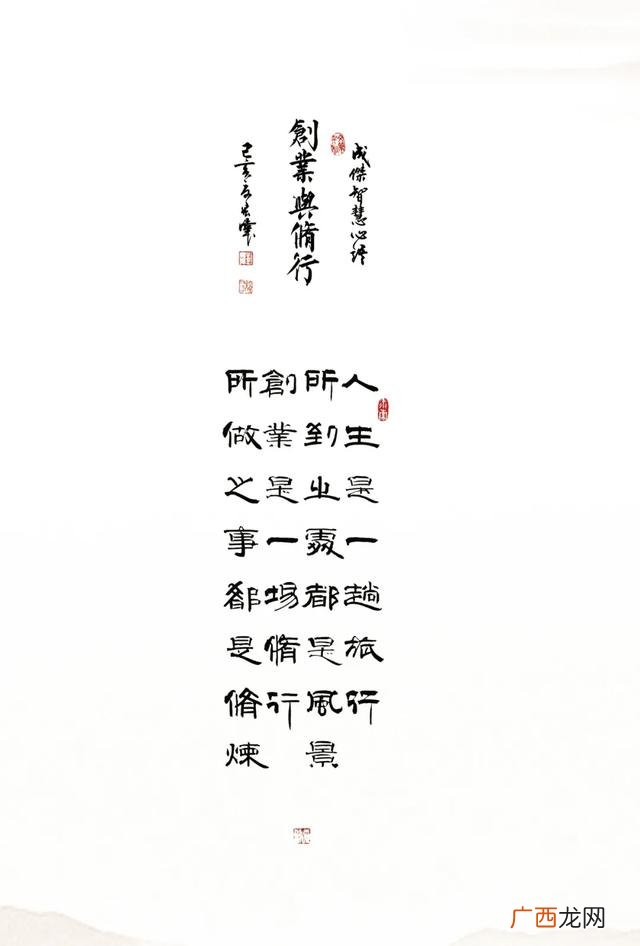 成傑智慧心語
創業與脩行
己亥
人生是一趟旅行
所到之處都是風景
創業是一場脩行
所做之事都是脩煉
广西龙网